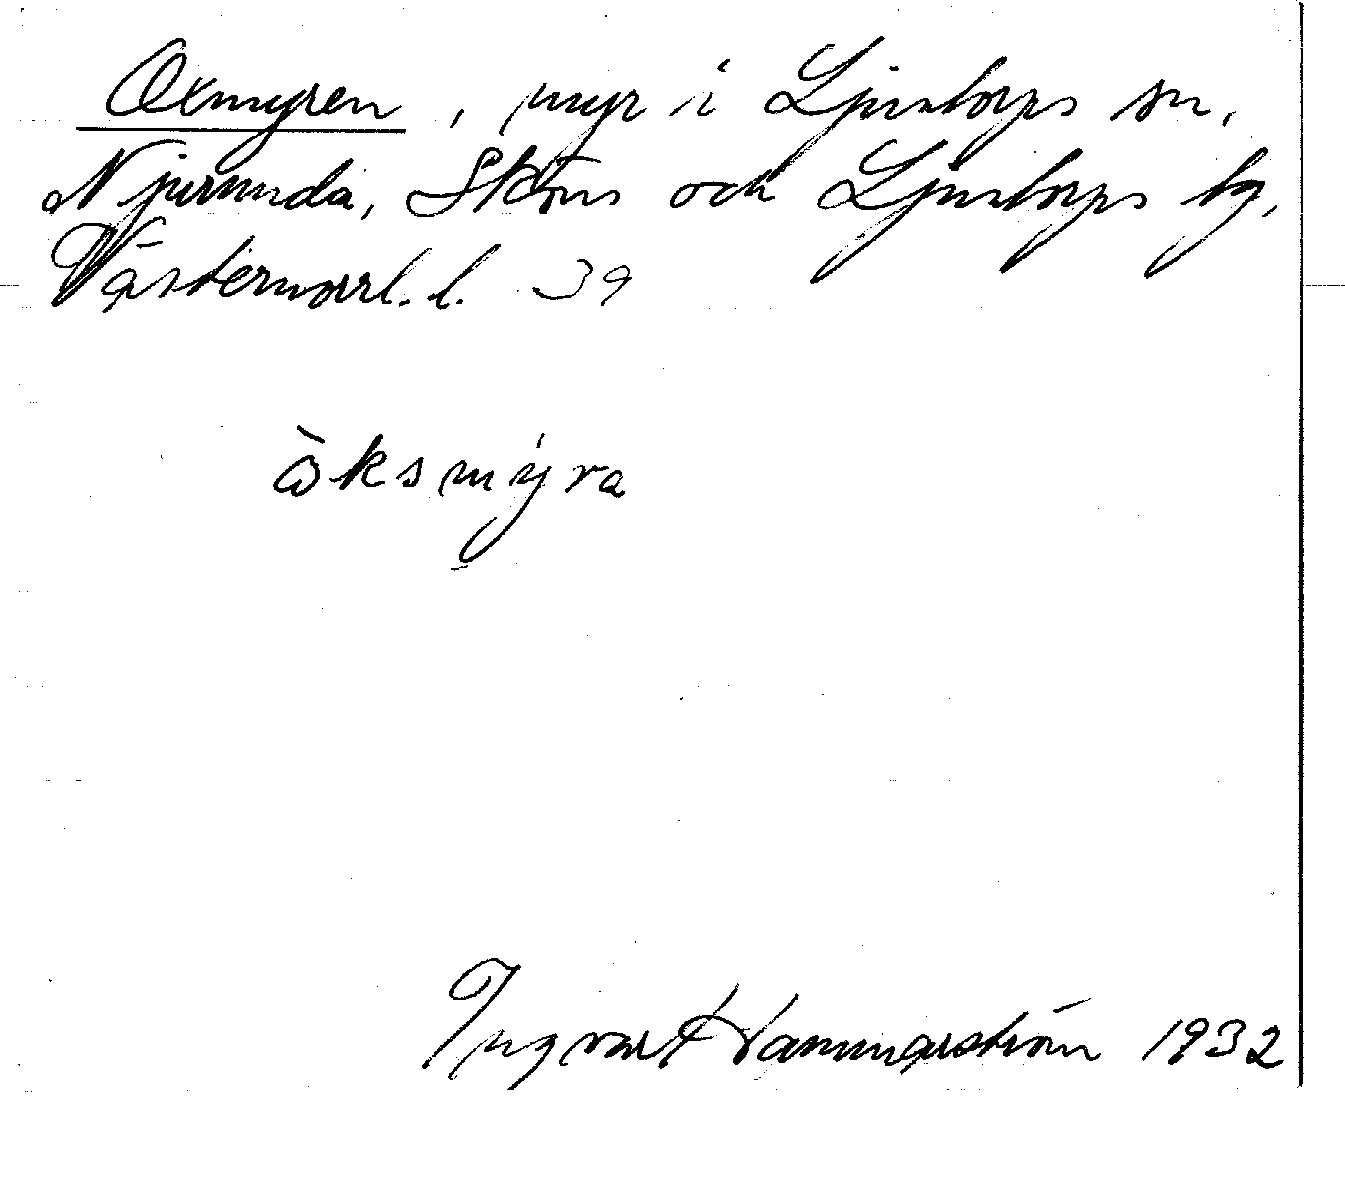 Oxmyren, myr i Ljustorps sn,
Njurunda, Sköns och Ljustorps tg,
Västernorrl. l. 39
ồksmýra
Ingvar Hammarström 1932